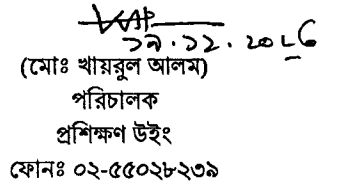 ১৯.১২.২০১৬
(মোঃ খায়রুল আলম)
পরিচালক
প্রশিক্ষণ উইং
ফোনঃ ০২-৫৫০২৮২৩৯